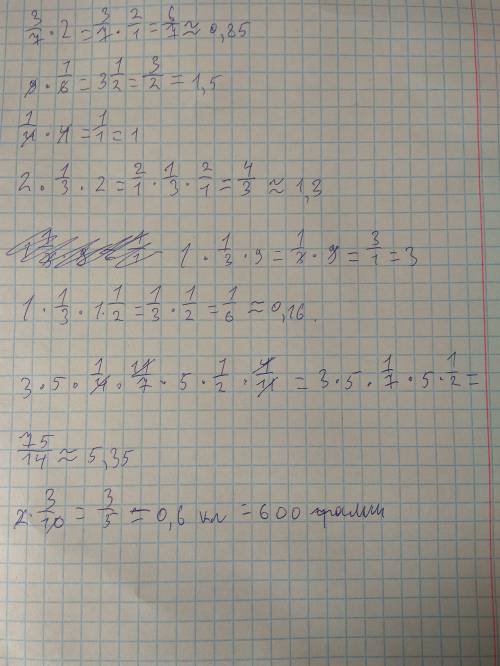 3/7 · 2 = 3/7 · 2/1 = 6/7 ≈ 0,85
9 · 1/6 = 3 1/2 = 3/2 = 1,5
1/4 · 4 = 1/1 = 1
2 · 1/3 · 2 = 2/1 · 1/3 · 2/1 = 4/3 ≈ 1,3
1 · 1/3 · 9 = 1/3 · 9 = 3/1 = 3
1 · 1/3 · 1 · 1/2 = 1/3 · 1/2 = 1/6 ≈ 0,16
3 · 5 · 1/4 · 11/7 · 5 · 1/2 · 4/11 = 3 · 5 · 1/7 · 5 · 1/2 =
75/14 ≈ 5,35
2 · 3/10 = 3/5 = 0,6 кл = 600 грамм